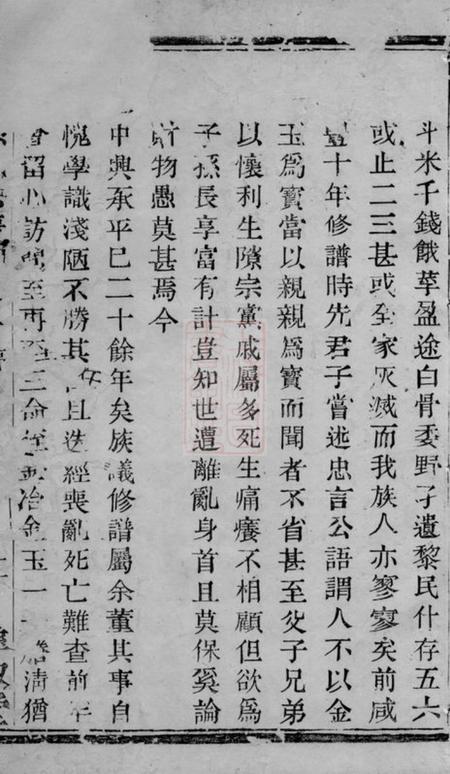 斗米千錢餓莩盈途白骨委野孑遺黎民什存五六
或止二三甚或至家灰滅而我族人亦寥寥矣前咸
豐十年修譜時先君子嘗述忠言公語謂人不以金
玉爲寳當以親親爲寳而聞者不省甚至父子兄弟
以懷利生隙宗黨戚屬多死生痛癢不相顧但欲爲
子孫長享富有計豈知世遭離亂身首且莫保奚論
財物愚莫甚焉今
中興承平已二十餘年矣族議修譜屬余董其事自
愧學識淺陋不勝其任且迭經喪亂死亡難查前年
曾留心訪聞至再至三命冶金玉一清猶